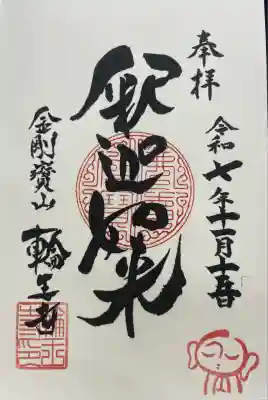 奉拝
令和七年十一月十五日
釈迦如来
金剛寶山
輪王寺